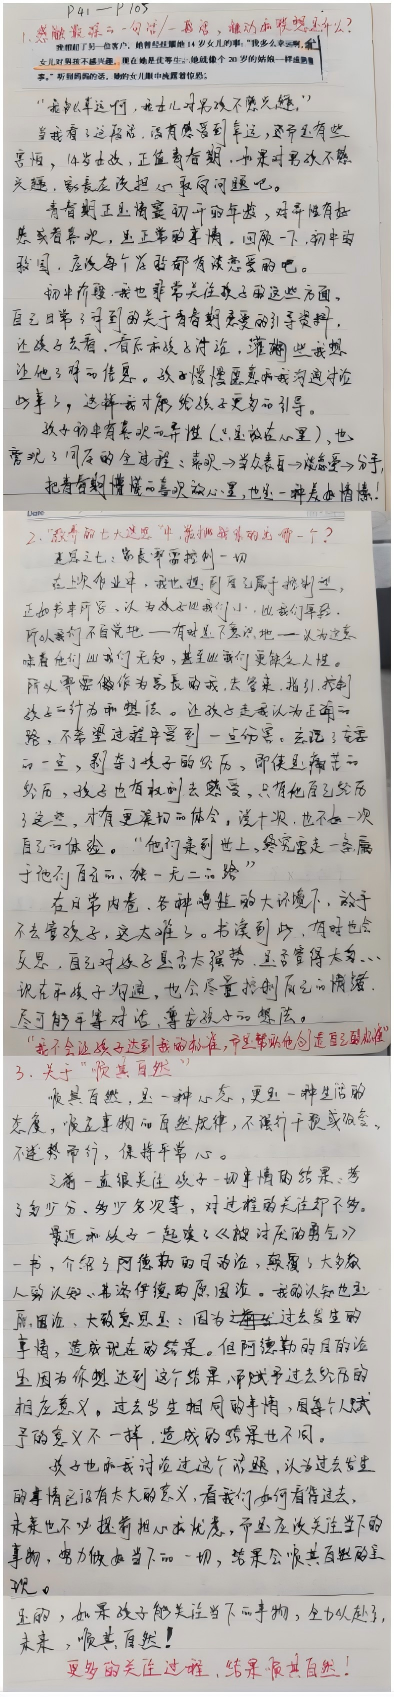 P41－P105
1.感触最深的一句话/一段话，触动和联想是什么？
我想起了另一位客户，她曾经炫耀她14岁女儿的事：“我多么幸运啊，我
女儿对男孩不感兴趣。现在她是优等生，她就像个20岁的姑娘一样成熟懂
事。”听到妈妈的话，她的女儿眼中流露着惊恐。
“我多么幸运啊，我女儿对男孩不感兴趣。”
当我看了这段话，没有感受到幸运，还带点有些
害怕，14岁女孩，正值青春期，如果对男孩不感
兴趣，家长应该担心取向问题吧。
青春期正是情窦初开的年龄，对异性有好
感或者喜欢，是正常的事情，回顾一下，初中的
校园，应该每个年级都有谈恋爱的吧。
初中阶段，我也非常关注孩子的这些方面，
自己日常了解到的关于青春期恋爱的引导资料，
让孩子去看，看后和孩子讨论，灌输些我想
让他了解的信息。孩子慢慢愿意和我沟通讨论
此事了，这样我才能给孩子更多的引导。
孩子初中有喜欢的异性（只是放在心里），也
旁观了同在的全过程：喜欢→当众表白→谈恋爱→分手，
把青春期懵懂的喜欢放心里，也是一种美好情愫！
2.“教养的七大迷思”中，最挑战我的是哪一个？
迷思之七：家长需要控制一切
在上次作业中，我也提到自己属于控制型，
正如书中所写，认为孩子比我们小，比我们年轻，
所以我们不自觉地——有时是下意识地——认为这意
味着他们比我们无知，甚至比我们更缺乏人性。
所以需要做作为家长的我，去管束、指引、控制
孩子的行为和想法。让孩子走我认为正确的
路，不希望过程中受到一点伤害。忽视了重要
的一点，剥夺了孩子的经历，即使是痛苦的
经历，孩子也有权利去感受，只有他自己经历
了这些，才有更深切的体会。说十次，也不如一次
自己的体验。“他们来到世上，终究要走一条属
于他们自己的、独一无二的路”
在日常内卷、各种鸡娃的大环境下，放手
不去管孩子，这太难了。书读到此，有时也会
反思，自己对孩子是否太强势，是否管得太多…
现在和孩子沟通，也会尽量控制自己的情绪，
尽可能平等对话，尊重孩子的想法。
“我不会让孩子达到我的标准，而是帮助他创造自己的标准”
3.关于“顺其自然”
顺其自然，是一种心态，更是一种生活的
态度，顺应事物的自然规律，不强行干预或改变，
不逆势而行，保持平常心。
之前一直很关注孩子一切事情的结果：考
了多少分、多少名次等，对过程的关注却不多。
最近和孩子一起读了《被讨厌的勇气》
一书，介绍了阿德勒的目的论，颠覆了大多数
人的认知，弗洛伊德的原因论。我的认知也是
原因论，大致意思是：因为过去发生的
事情，造成现在的结果。但阿德勒的目的论
是因为你想达到这个结果，而赋予过去经历的
相应意义。过去发生相同的事情，因每个人赋
予的意义不一样，造成的结果也不同。
孩子也和我讨论过这个话题，认为过去发生
的事情已没有太大的意义，看我们如何看待过去，
未来也不必提前担心和忧虑，而是应该关注当下的
事物，努力做好当下的一切，结果会顺其自然的呈
现。
是的，如果孩子能关注当下的事物，全力以赴了，
未来，顺其自然！
更多的关注过程，结果顺其自然！